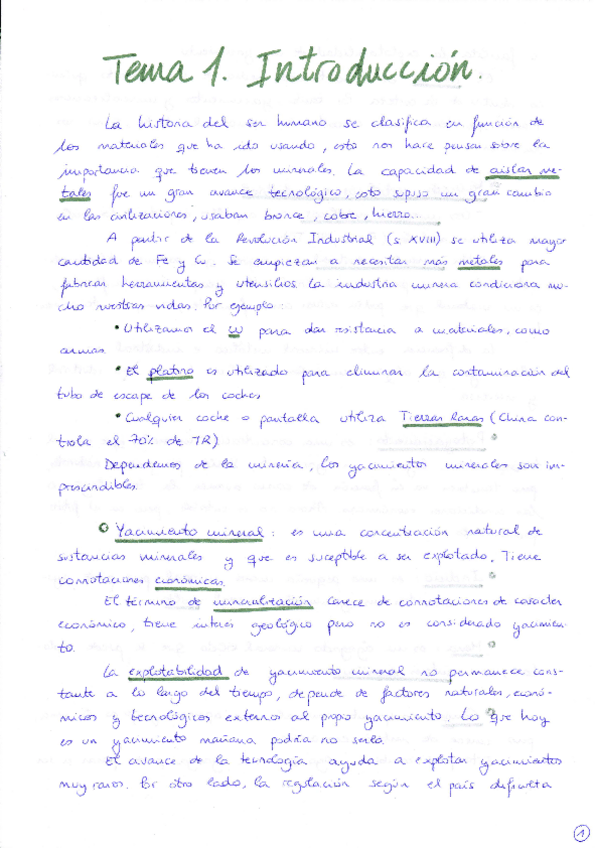 Tema 1. Introducción.
La historia del ser humano se clasifica en función de
los materiales que ha ido usando, esto nos hace pensar sobre la
importancia que tienen los minerales. La capacidad de aislar me-
tales fue un gran avance tecnológico, esto supuso un gran cambio
en las civilizaciones, usaban bronce, cobre, hierro...
A partir de la Revolución Industrial (s. XVIII) se utiliza mayor
cantidad de Fe y Cu. Se empiezan a necesitar más metales para
fabricar herramientas y utensilios. La industria minera condiciona mu-
cho nuestras vidas. Por ejemplo:
• Utilizamos el W para dar resistancia a materiales, como
armas.
• El platino es utilizado para eliminar la contaminación del
tubo de escape de los coches
• Cualquier coche o pantalla utiliza Tierras Raras (China con-
trola el 70% de TR)
Dependemos de la minería, los yacimientos minerales son im-
prescindibles.
Yacimiento mineral: es una concentración natural de
sustancias minerales y que es suceptible a ser explotado. Tiene
connotaciones económicas.
El término de mineralización carece de connotaciones de caracter
económico, tiene interés geológico pero no es considerado yacimien-
to.
La explotabilidad de yacimiento mineral no permanece cons-
tante a lo largo del tiempo, depende de factores naturales, econó-
micos y tecnológicos externos al propio yacimiento. Lo que hoy
es un yacimiento mañana podría no serlo.
El avance de la tecnología ayuda a explotar yacimientos
muy raros. Por otro lado, la regulación según el país dificulta
1